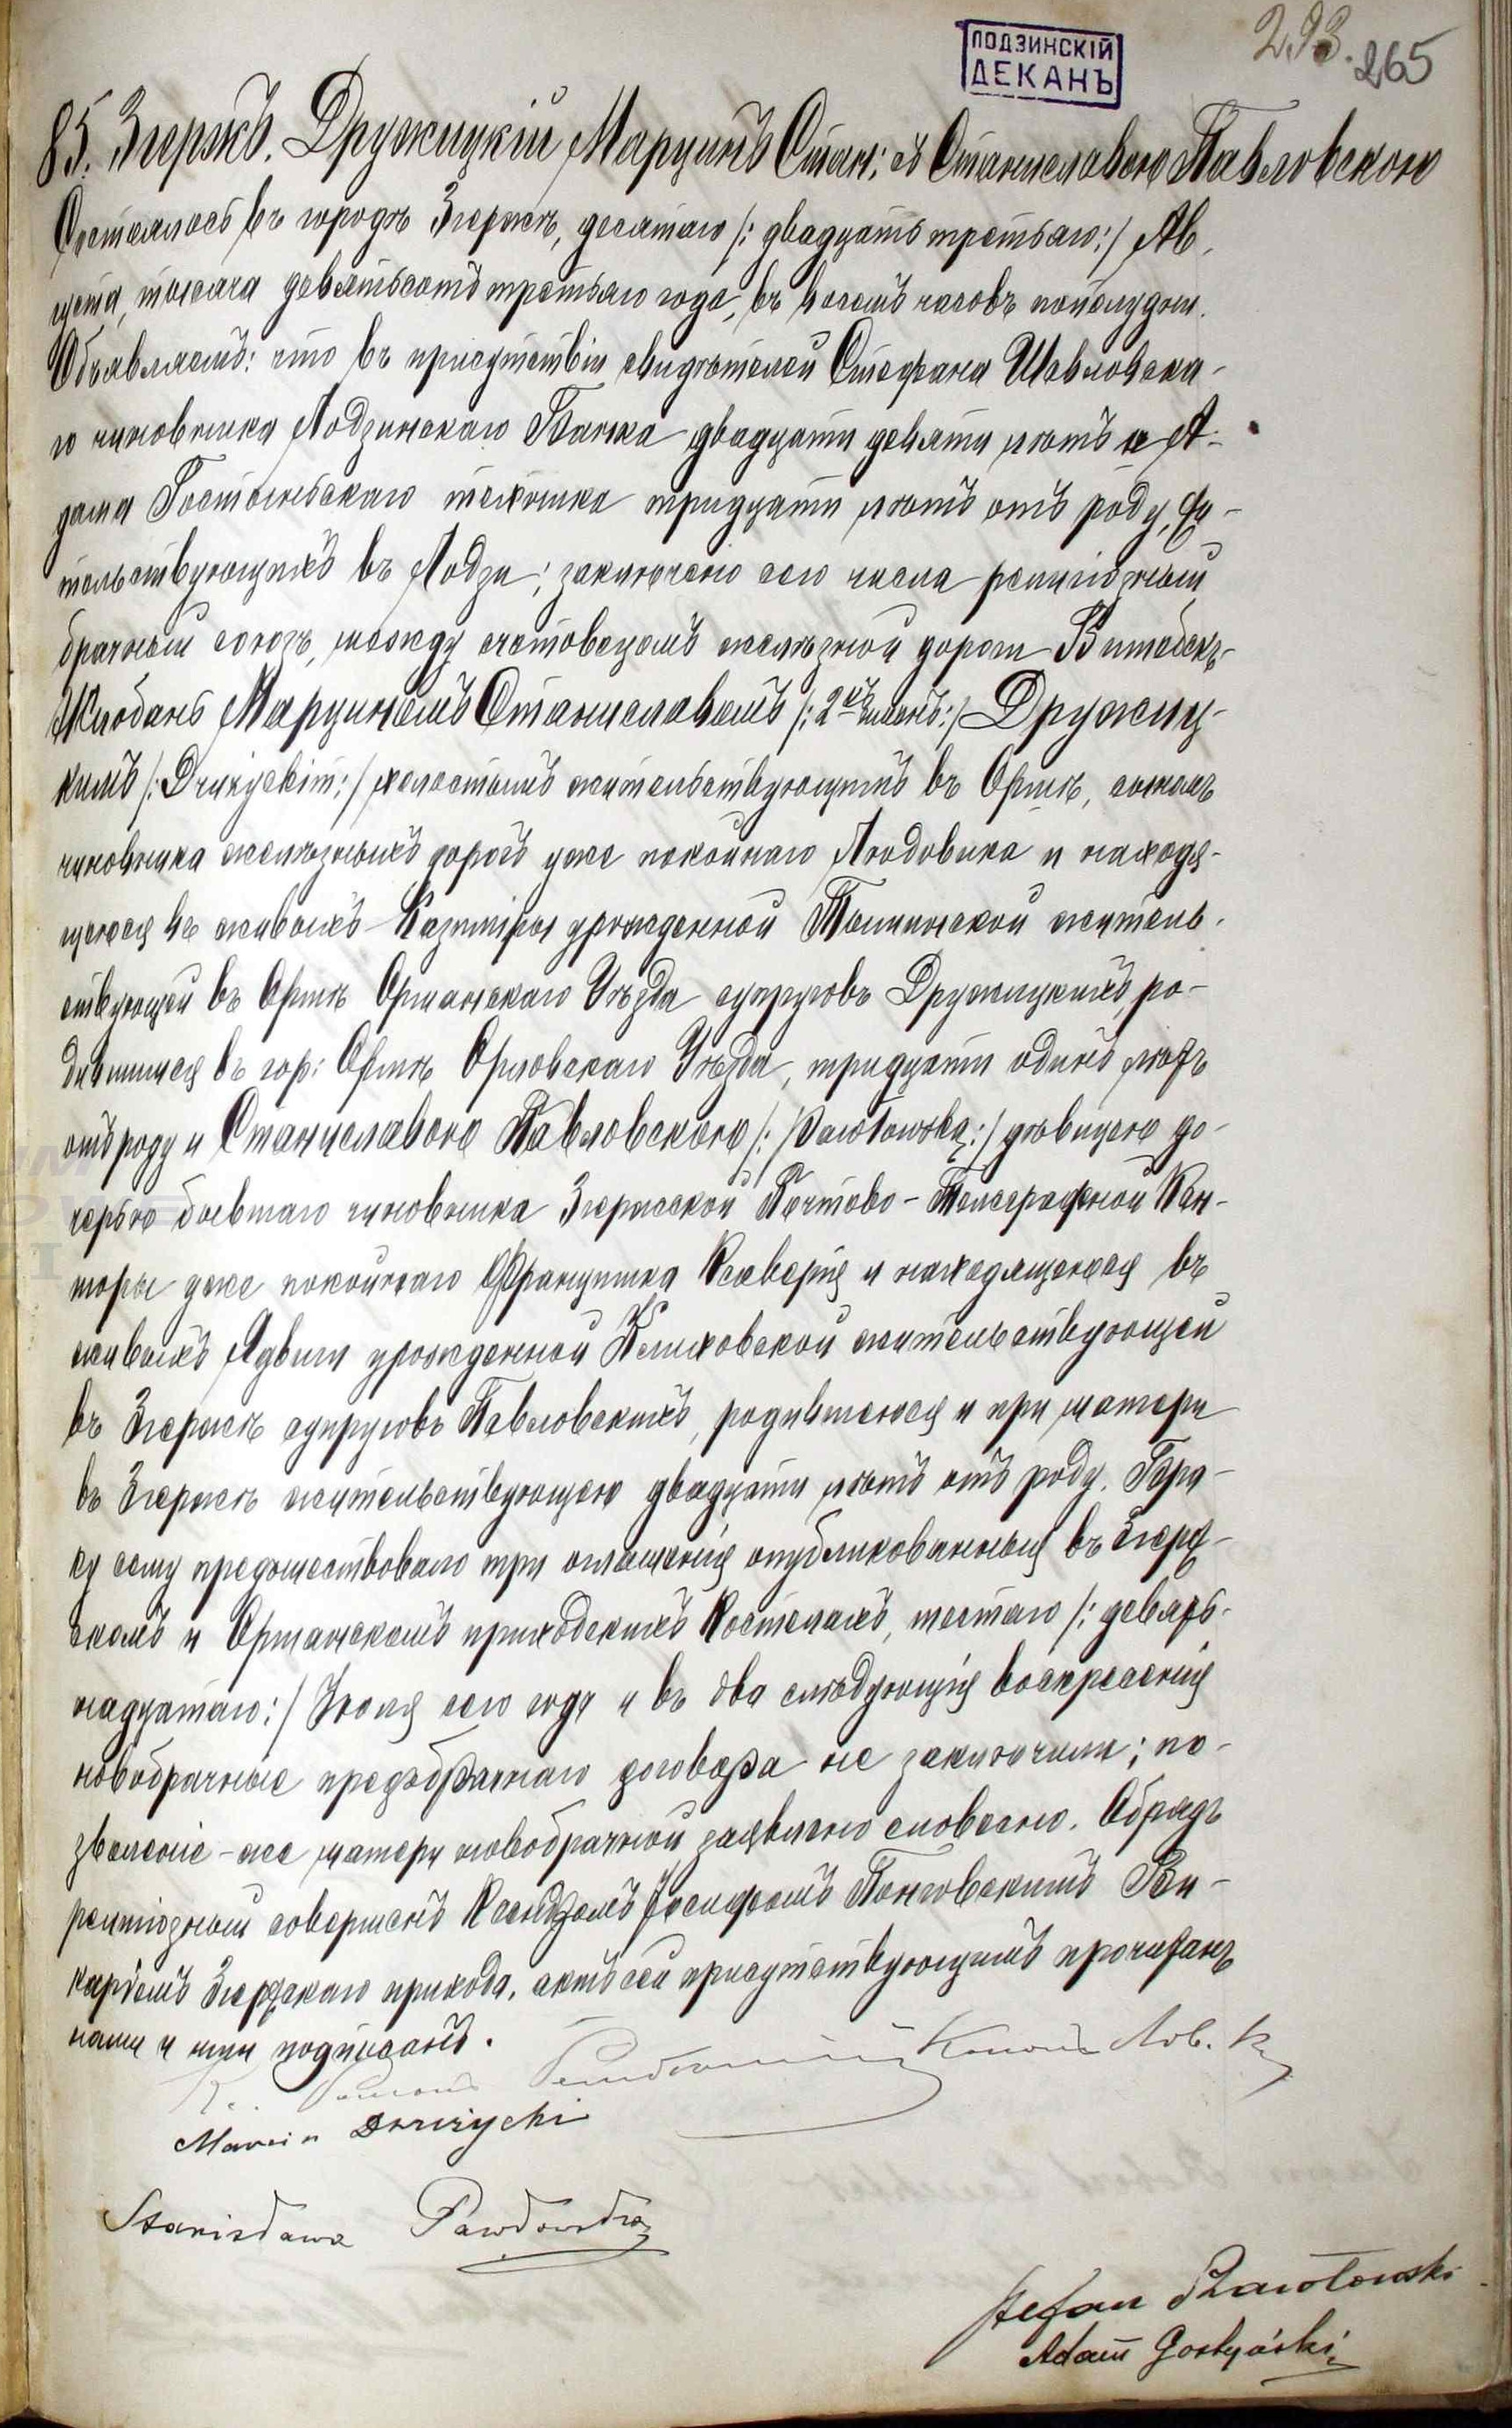 ЛОДЗИНСКІЙ
ДЕКАНЪ
293. 265
85. Згержъ. Дружицкій Марцинъ Стан: съ Станиславою Павловскою
Состоялось въ городѣ Згержѣ, десятаго /: двадцать третьяго :/ Ав-
густа, тысяча девятьсотъ третьяго года, въ восемь часовъ пополудни.
Объявляемъ: что въ присутствіи свидѣтелей Стефана Шавловска-
го чиновника Лодзинскаго Банка двадцати девяти лѣтъ и А-
дама Гостыньскаго техника тридцати лѣтъ отъ роду, жи-
тельствующихъ въ Лодзи; заключенъ сего числа религіозный
брачный союзъ, между счетоводомъ желѣзной дороги Витебскъ-
Жлобинъ Марциномъ Станиславомъ /: 2хъ именъ :/ Дружиц-
кимъ /: Drużyckim :/ холостымъ жительствующимъ въ Оршѣ, сыномъ
чиновника желѣзныхъ дорогъ уже покойнаго Людовика и находя-
щейся въ живыхъ Казиміры урожденной житель-
ствующей въ Оршѣ Оршанскаго Уѣзда супруговъ Дружицкихъ, ро-
дившимся въ гор: Орлѣ Орловскаго Уѣзда, тридцати одинъ лѣтъ
отъ роду и Станиславою Павловскою /: Pawłowską :/ дѣвицею до-
черью бывшаго чиновника Згержской Почтово-Телеграфной Кон-
торы уже покойнаго Францишка Ксаверія и находящейся въ
живыхъ Ядвиги урожденной Клиховской жительствующей
въ Згержѣ супруговъ Павловскихъ, родившеюся и при матери
въ Згержѣ жительствующею двадцати лѣтъ отъ роду. Бра-
ку сему предшествовало три оглашенія опубликованныя въ Згерж-
скомъ и Оршанскомъ приходскихъ Костелахъ, шестаго /: девят-
надцатаго :/ Іюля сего года и въ два слѣдующія воскресенія
новобрачные предъбрачнаго договора не заключили; по-
зволеніе-же матери новобрачной заявлено словесно. Обрядъ
религіозный совершенъ Ксендзомъ Іосифомъ Понговскимъ Ви-
каріемъ Згержскаго прихода. Актъ сей присутствующимъ прочитанъ
нами и ими подписанъ.
Кс. Лов. К
Marcin Drużycki
Stanisława Pawłowska
Stefan Szawłowski
Adam Gostyński